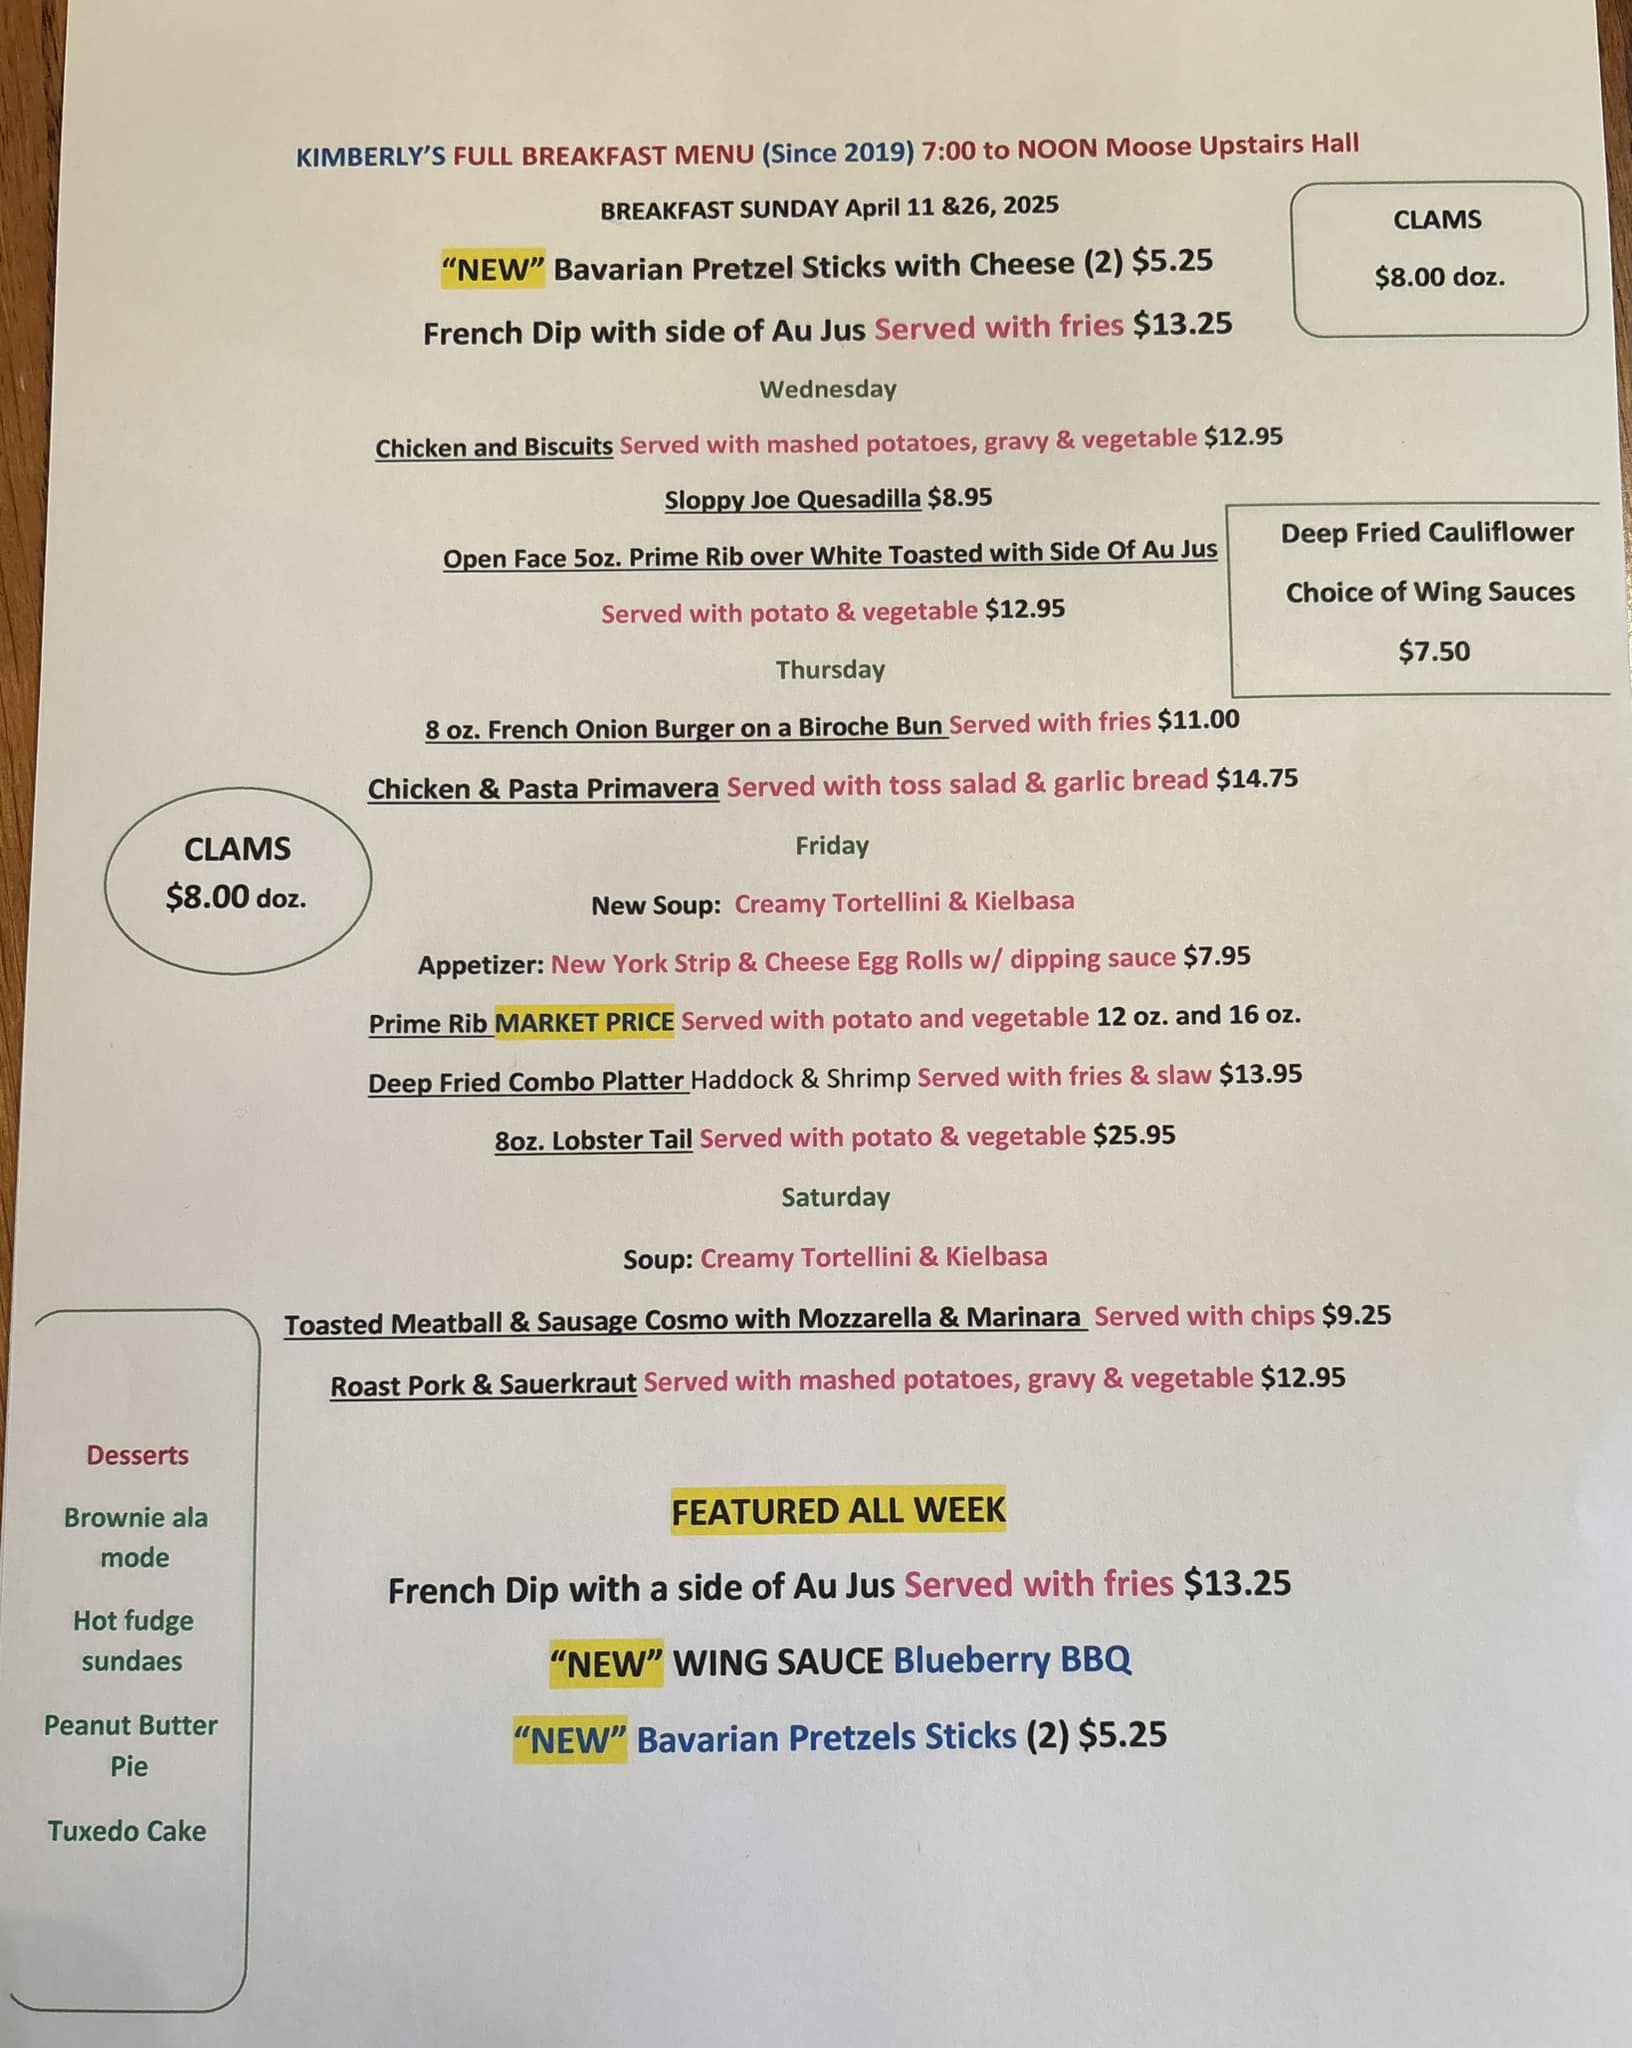 KIMBERLY'S FULL BREAKFAST MENU (Since 2019) 7:00 to NOON Moose Upstairs Hall
BREAKFAST SUNDAY April 11 &26, 2025
CLAMS
$8.00 doz.
“NEW” Bavarian Pretzel Sticks with Cheese (2) $5.25
French Dip with side of Au Jus Served with fries $13.25
Wednesday
Chicken and Biscuits Served with mashed potatoes, gravy & vegetable $12.95
Sloppy Joe Quesadilla $8.95
Open Face 5oz. Prime Rib over White Toasted with Side Of Au Jus
Served with potato & vegetable $12.95
Deep Fried Cauliflower
Choice of Wing Sauces
$7.50
Thursday
8 oz. French Onion Burger on a Biroche Bun Served with fries $11.00
Chicken & Pasta Primavera Served with toss salad & garlic bread $14.75
CLAMS
$8.00 doz.
Friday
New Soup: Creamy Tortellini & Kielbasa
Appetizer: New York Strip & Cheese Egg Rolls w/ dipping sauce $7.95
Prime Rib MARKET PRICE Served with potato and vegetable 12 oz. and 16 oz.
Deep Fried Combo Platter Haddock & Shrimp Served with fries & slaw $13.95
8oz. Lobster Tail Served with potato & vegetable $25.95
Saturday
Soup: Creamy Tortellini & Kielbasa
Toasted Meatball & Sausage Cosmo with Mozzarella & Marinara Served with chips $9.25
Roast Pork & Sauerkraut Served with mashed potatoes, gravy & vegetable $12.95
Desserts
Brownie ala
mode
Hot fudge
sundaes
Peanut Butter
Pie
Tuxedo Cake
FEATURED ALL WEEK
French Dip with a side of Au Jus Served with fries $13.25
“NEW” WING SAUCE Blueberry BBQ
“NEW” Bavarian Pretzels Sticks (2) $5.25